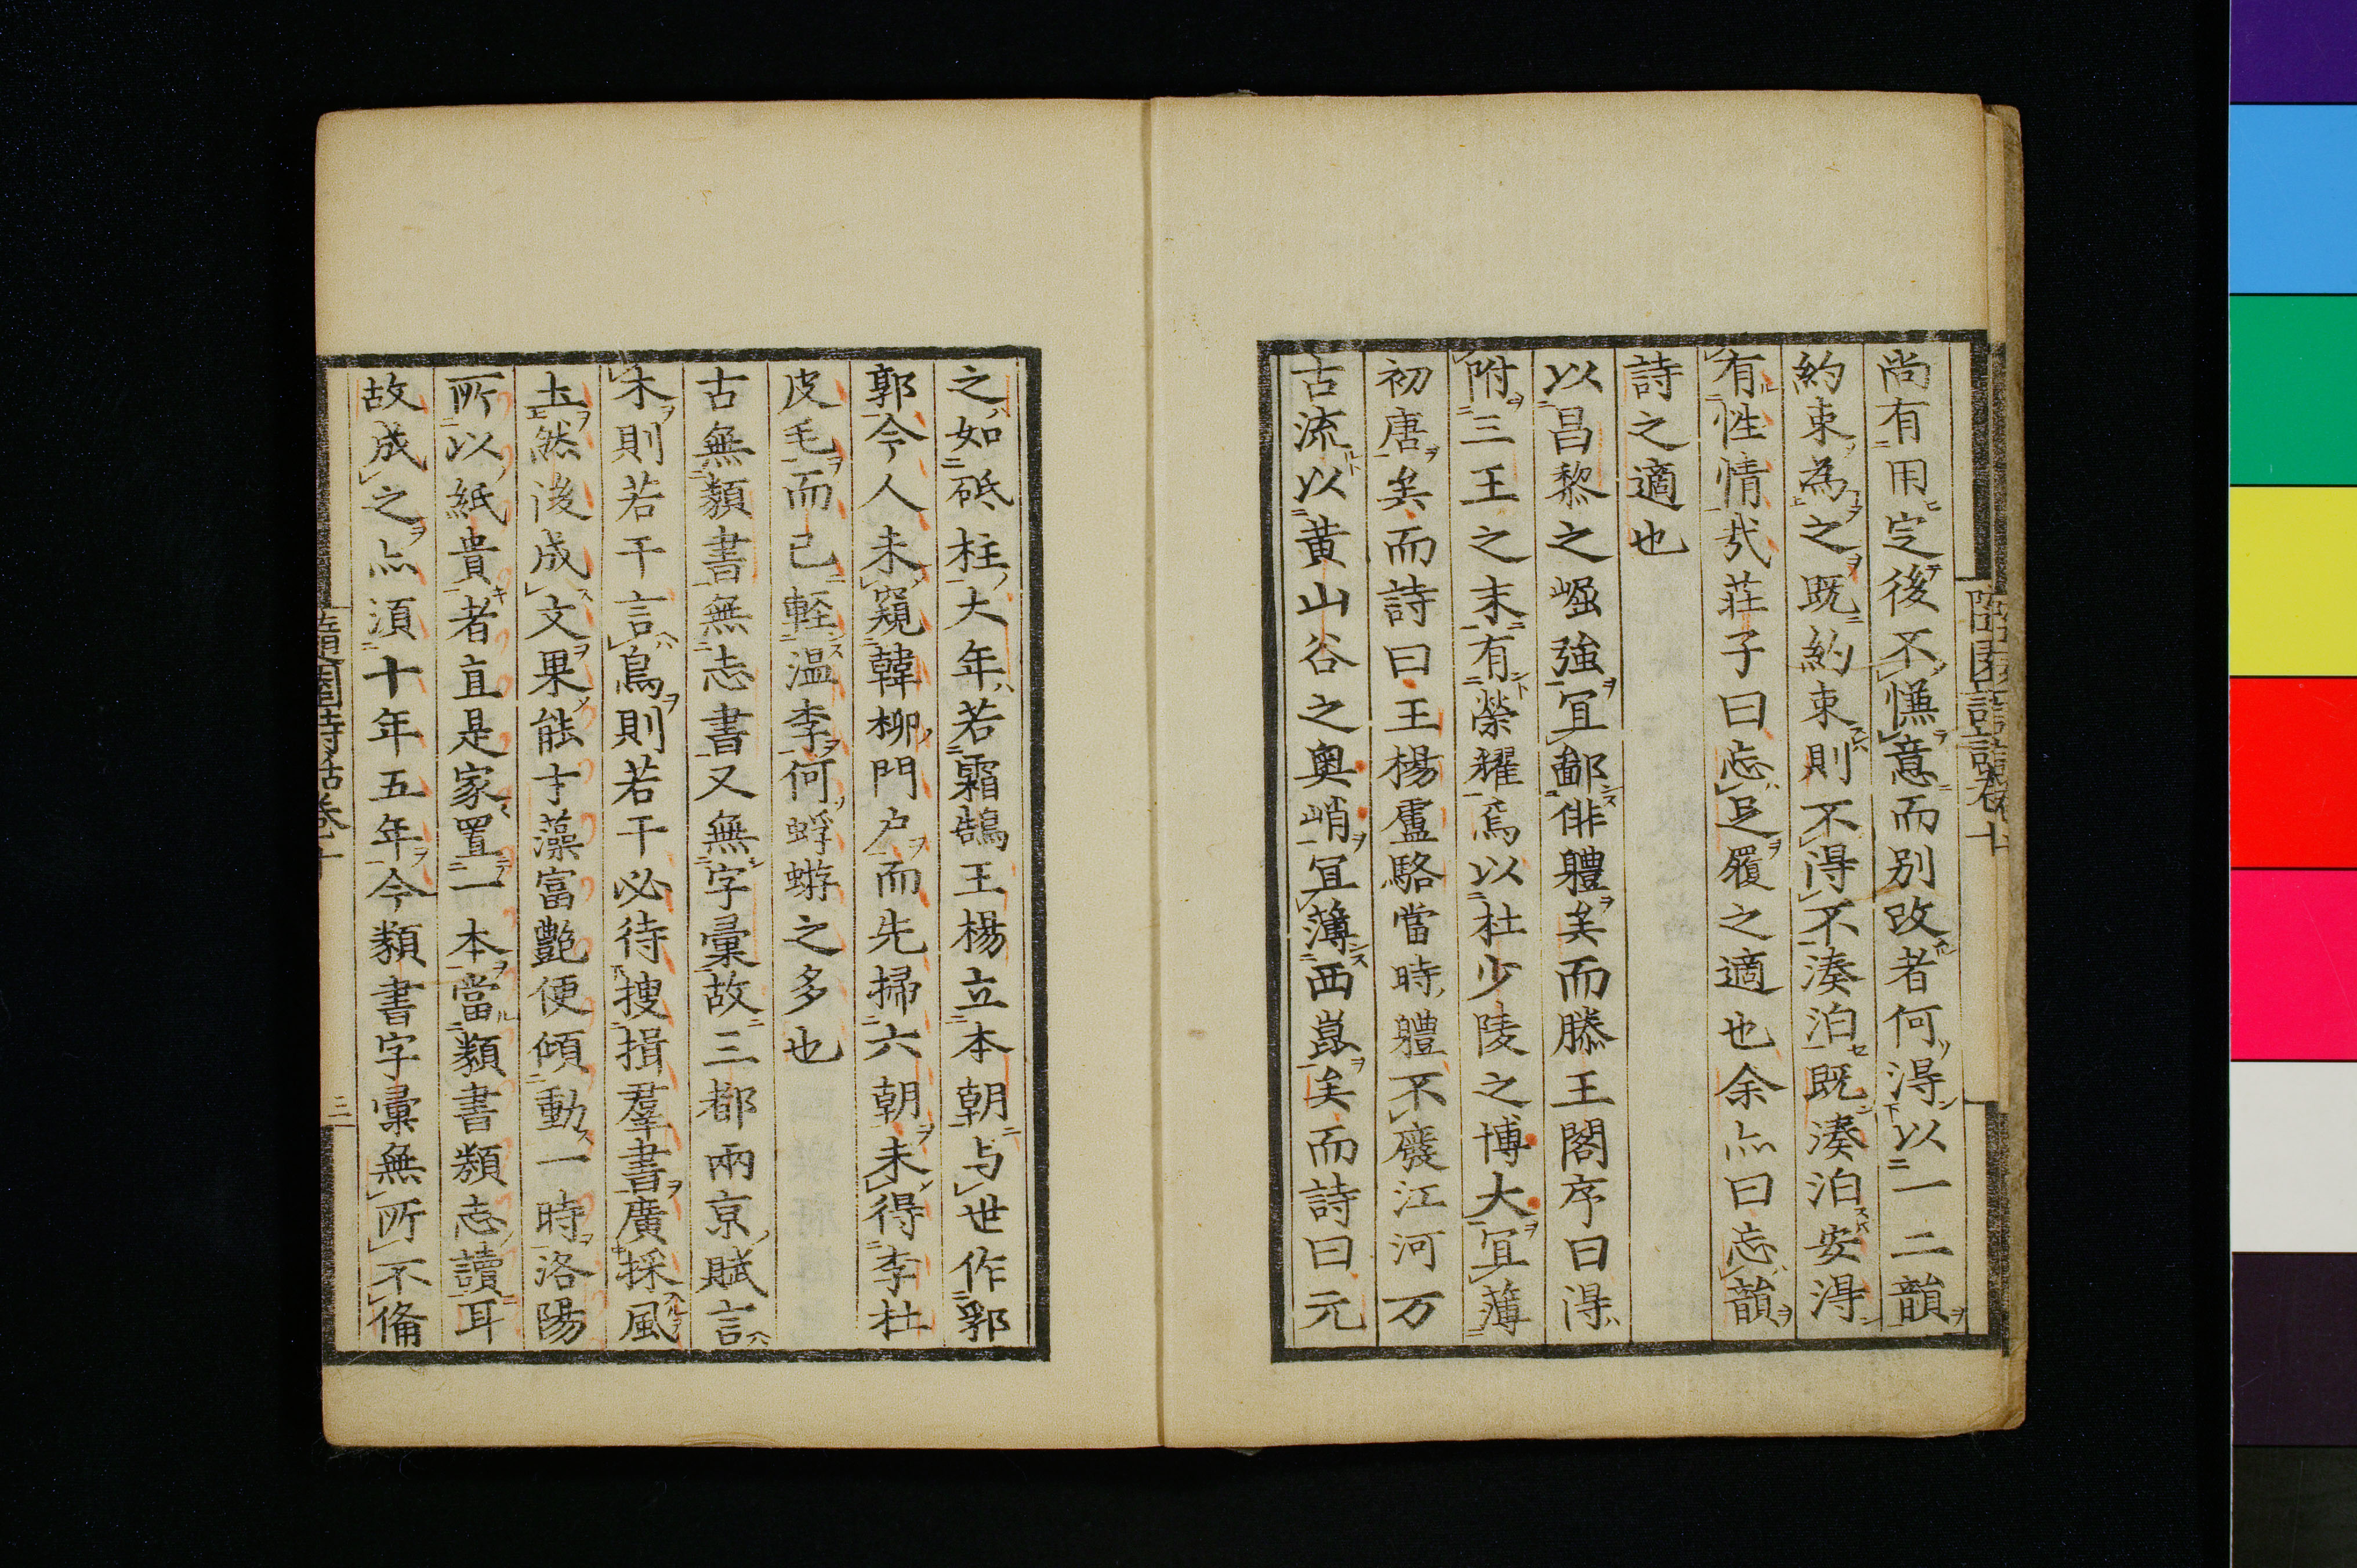 尚有用定後不慊意而别改者何得以一二韻
約束為之既約束則不得不湊泊既湊泊安得
有性情哉莊子曰忘足履之適也余亦曰忘韻
詩之適也
以昌黎之崛強冝鄙俳體矣而滕王閣序曰得
附三王之末有榮耀焉以杜少陵之博大冝薄
初唐矣而詩曰王楊盧駱當時體不廢江河万
古流以黄山谷之奥峭冝薄西崑矣而詩曰元
之如砥柱大年若霜鵠王楊立本朝与世作郛
郭今人未窺韓柳門户而先掃六朝未得李杜
皮毛而已輕温李何蜉蝣之多也
古無類書無志書又無字彙故三都兩京賦言
木則若干言鳥則若干必待搜揖羣書廣採風
土然後成文果能才藻富艷便傾動一時洛陽
所以紙貴者直是家置一本當類書類志讀耳
故成之亦須十年五年今類書字彙無所不備
隨園詩話卷十
三